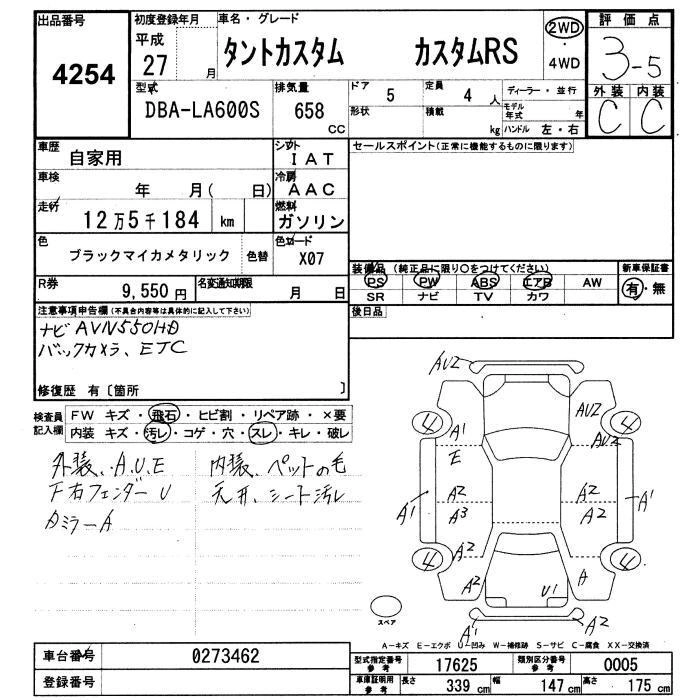 出品番号
4254
初度登録年月
平成
27 月
車名・グレード
タントカスタム カスタムRS
2WD
・
4WD
評価点
3-5
外装 内装
C C
型式
DBA-LA600S
排気量
658
CC
ドア 5
定員 4 人
形状
積載 kg
ディーラー・並行
モデル年式 年
ハンドル 左・右
車歴 自家用
シフト IAT
車検 年 月( 日)
冷房 AAC
走行 12万5千184 km
燃料 ガソリン
色 ブラックマイカメタリック 色替
色コード X07
R券 9,550円
名変通知期限 月 日
セールスポイント(正常に機能するものに限ります)
装備品 (純正品に限り○をつけてください)
PS PW ABS エアB AW
SR ナビ TV カワ
新車保証書
有・無
後日品
注意事項申告欄(不具合内容等は具体的に記入して下さい)
ナビ AVN550HD
バックカメラ、ETC
修復歴 有〔箇所 〕
検査員記入欄
FW キズ・飛石・ヒビ割・リペア跡・×要
内装 キズ・汚レ・コゲ・穴・スレ・キレ・破レ
外装、A.U.E
下右フェンダーU
カミラーA
内装、ペットの毛
天井、シート汚レ
AUZ
4
A1
E
A2
A3
A1
A2
4
A2
AUZ
4
AUZ
A2
A2
A1
4
A
U1
A1
A2
スペア
A-キズ E-エクボ U-凹み W-補修跡 S-サビ C-腐食 XX-交換済
車台番号 0273462
登録番号
型式指定番号 参考 17625
類別区分番号 参考 0005
車庫証明用 参考 長さ 339 cm 幅 147 cm 高さ 175 cm